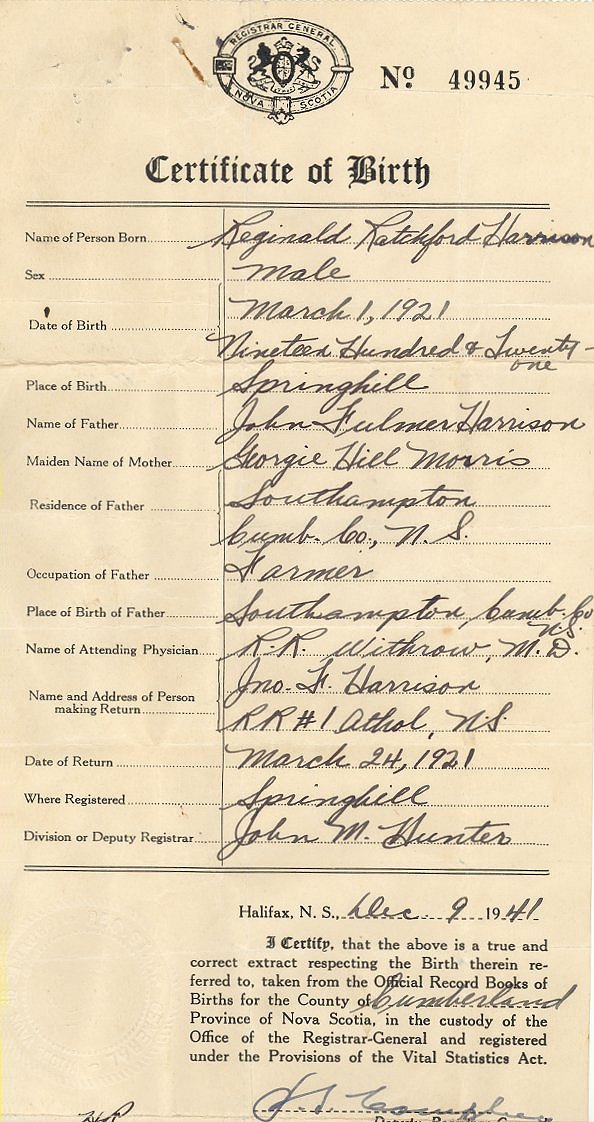 REGISTRAR GENERAL
NOVA SCOTIA
Nº 49945
Certificate of Birth
Name of Person Born Reginald Ratchford Harrison
Sex Male
Date of Birth March 1, 1921
Nineteen Hundred & Twenty-
one
Place of Birth Springhill
Name of Father John Fulmer Harrison
Maiden Name of Mother Georgie Hill Morris
Residence of Father Southampton
Cumb. Co., N.S.
Occupation of Father Farmer
Place of Birth of Father Southampton, Cumb. Co
N.S.
Name of Attending Physician R.R. Withrow, M.D.
Name and Address of Person
making Return Jno. F. Harrison
RR #1 Athol, N.S.
Date of Return March 24, 1921
Where Registered Springhill
Division or Deputy Registrar John M. Hunter
Halifax, N. S., Dec 9 1941
I Certify, that the above is a true and
correct extract respecting the Birth therein re-
ferred to, taken from the Official Record Books of
Births for the County of Cumberland
Province of Nova Scotia, in the custody of the
Office of the Registrar-General and registered
under the Provisions of the Vital Statistics Act.